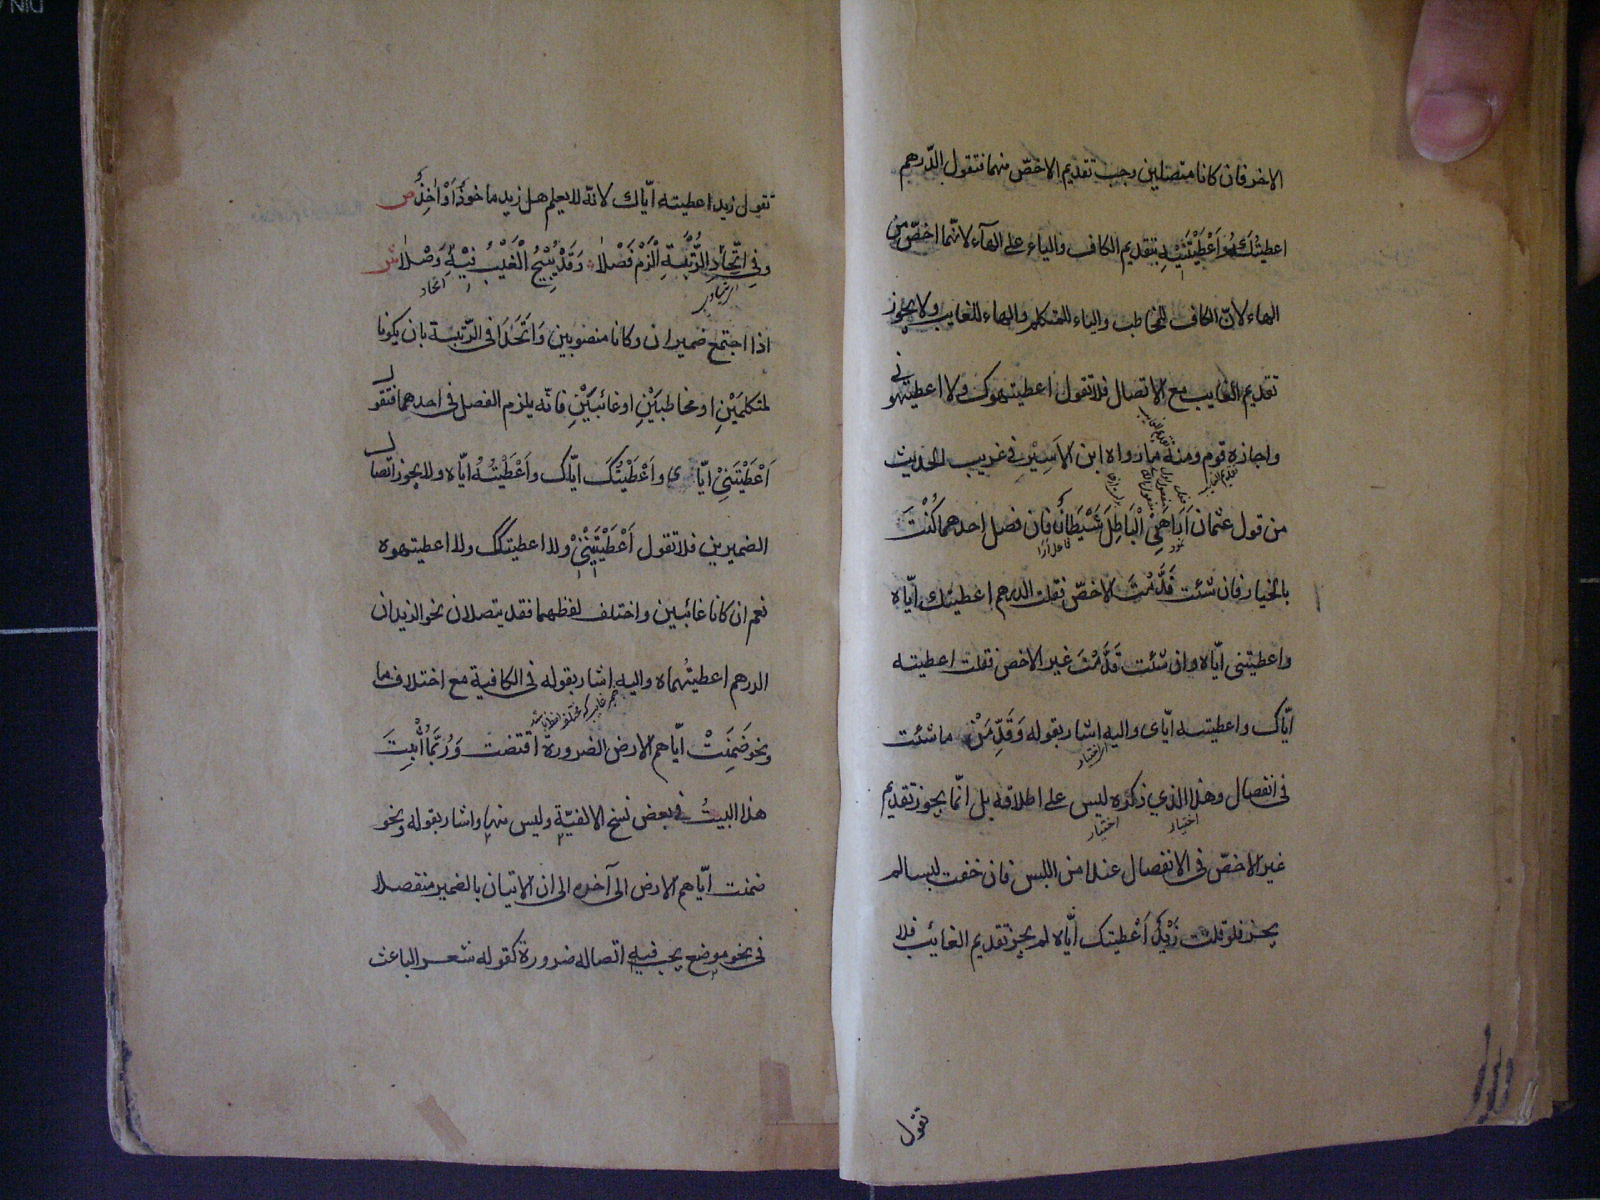 الاخر فان كانا متصلين وجب تقديم الاخصّ منهما فتقول الدّرهم
اعطيتُكَهُ وَاَعْطَيْتَنِيْهِ بتقديم الكاف والياء على الهآء لانّهما اخصّ من
الهاء لانّ الكاف للمخاطب والياء للمتكلم والهاء للغايب ولا يجوز
تقديم الغايب مع الاتصال فلا تقول اعطيتهوك ولا اعطيتهونى
واجازه قوم ومنه ما رواه ابن الاَسِيْر فى غريب الحديث
من قول عثمان اَرَاهَمُنِى اْلبَاطِلَ شَيْطَانًا فان فصل احدهما كُنْتَ
بالخيار فان شئت قَدَّمْتَ الاخصّ فقلت الدرهم اعطيتك ايّاه
واعطيتنى ايّاه وان شئت قَدَّمْتَ غير الاخصّ فقلت اعطيته
ايّاك واعطيته ايّاى واليه اشار بقوله وَقَدِّمَنْ ما شئت
فى انفصال وهذا الذي ذكره ليس على اطلاقه بل انّما يجوز تقديم
اختيار
اختيار
غير الاخصّ فى الانفصال عند امن اللبس فان خفت لبسا لم
يجز فلو قلت زَيْدٌ اَعْطيتك ايّاه لم يجز تقديم الغائب فلا
تقول
تقول زيد اعطيته ايّاك لانّه لا يعلم هل زيد ماخوذ اَوْ اٰخِذٌ ص
وَفِى اتِّحَادِ الرُّتْبَةِ اْلزَمْ فَصْلاً وَقَدْ يُبِيْحُ اْلغَيْبُ فِيْهِ وَصْلاً ش
اتحاد
اذا اجتمع ضميران وكانا منصوبين وَاتَّحَدَا فى الرّتبة بان يكونا
لمتكلمَيْنِ او مخاطبَيْنِ او غائبَيْنِ فانّه يلزم الفصل فى احدهما فتقول
اَعْطَيْتَنِىْ ايّاى واَعْطَيْتُكَ ايّاك واَعْطَيْتُهُ ايّاه ولا يجوز اتّصال
الضميرين فلا تقول اَعْطَيْتَنِيْنِىْ ولا اعطيتكك ولا اعطيتهوه
نعم ان كانا غائبين واختلف لفظهما فقد يتصلان نحو الزيدان
الدرهم اعطيتُهماه واليه اشار بقوله فى الكافية مع اختلاف ما
ونحو ضَمِنَتْ ايّاهم الارض الضرورة اقتضت وَرُبَّمَا اُثْبِتَ
هذا البيتُ فى بعض نسخ الالفيّة وليس منها واشار بقوله ونحو
ضمنت ايّاهم الارض الى آخره الى ان الاتيان بالضمير منفصلا
فى نحو موضع يجب فيه اتّصاله ضرورة كقوله شعر الباعث